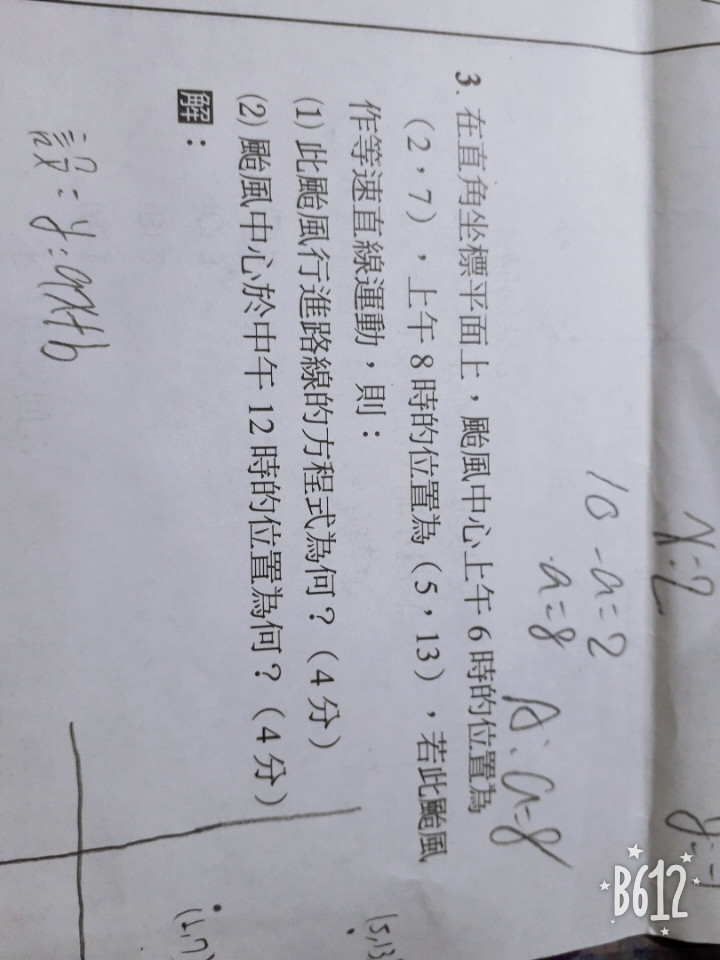 x=2
y=-1
10-a=2
a=8
A:a=8
3. 在直角坐標平面上,颱風中心上午6時的位置為
(2,7),上午8時的位置為(5,13),若此颱風
作等速直線運動,則:
(1) 此颱風行進路線的方程式為何?(4分)
(2) 颱風中心於中午12時的位置為何?(4分)
解:
設=y=ax+b
(5,13)
(2,7)
B612